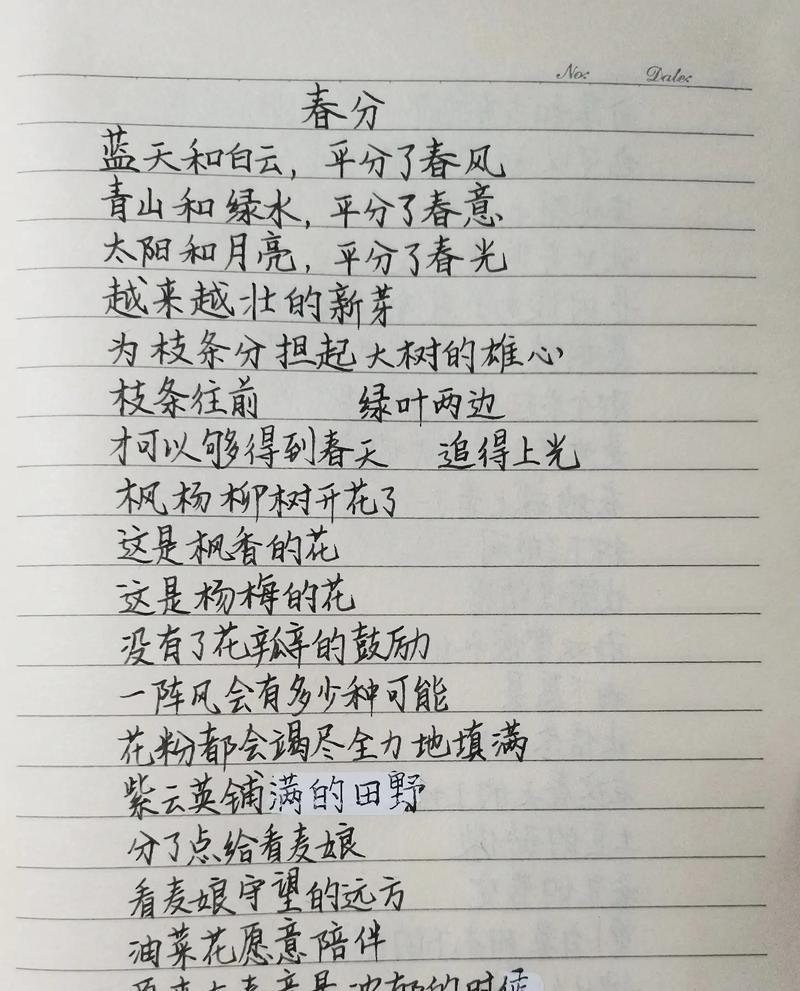 No: Date:
春分
蓝天和白云，平分了春风
青山和绿水，平分了春意
太阳和月亮，平分了春光
越来越壮的新芽
为枝条分担起大树的雄心
枝条往前 绿叶两边
才可以够得到春天 追得上光
枫杨柳树开花了
这是枫香的花
这是杨梅的花
没有了花瓣的鼓励
一阵风会有多少种可能
花粉都会竭尽全力地填满
紫云英铺满的田野
分了点给看麦娘
看麦娘守望的远方
油菜花愿意陪伴
的时候